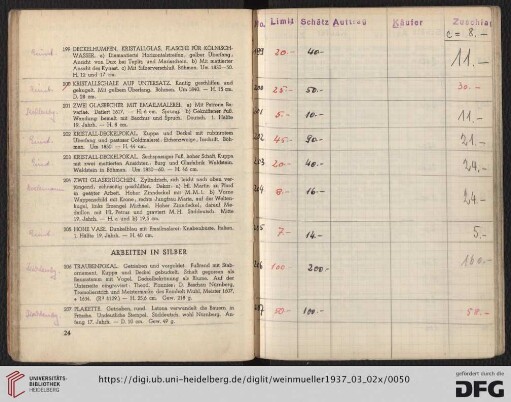 199 DECKELHUMPEN, KRISTALLGLAS, FLASCHE FÜR KÖLNISCH-
WASSER. a) Diamantierte Horizontalstreifen, gelber Überfang,
Ansicht von Dux bei Teplitz und Mariaschein. b) Mit
Ansicht des Kynast. c) Mit Silberverschluß. Böhmen. Um 1835—50.
H. 12 und 17 cm.
200 KRISTALLSCHALE AUF UNTERSATZ. Kantig geschliffen und
gekugelt. Mit gelbem Überfang. Böhmen. Um 1840. — H. 15 cm.
D. 28 cm.
201 ZWEI GLASBECHER MIT EMAILMALEREI. a) Mit
Datiert 1617. — H. 6 cm. Sprung. b)
Wandung bemalt mit und Spruch. Deutsch. 1. Hälfte
19. Jahrh. — H. 8 cm.
202 KRISTALL-DECKELPOKAL. Kuppe und Deckel mit rubinrotem
Überfang und garniertem Goldmalerei: Böh-
men. Um 1850. — H. 44 cm.
203 KRISTALL-DECKELPOKAL. Sechspassiger Fuß, hoher Schaft, Kuppe
mit zwei mattierten Ansichten: Burg und Glasfabrik Waldstein.
Waldstein in Böhmen. Um 1850—60. — H. 36 cm.
204 ZWEI GLASKRÜGCHEN. Zylindrisch, sich leicht nach oben ver-
jüngend, schneckig geschliffen. Dekor: a) Hl. Martin zu Pferd
in gesetzter Arbeit. Hoher Zinndeckel mit M. M. I. b) Vorne
Wappenschild mit Krone, rechts Jungfrau Maria, auf der Weltku-
kugel, links Erzengel Michael. Hoher Zinndeckel, darauf Me-
daillon mit Hl. Petrus und graviert M. H. Süddeutsch. Mitte
19. Jahrh. — H. c und H) 19,5 cm.
205 HOHE VASE. Dunkelblau mit Emailmalerei: Knabenbüste. Italien.
1. Hälfte 19. Jahrh. — H. 40 cm.
ARBEITEN IN SILBER
206 TRAUBENPOKAL. Getrieben und vergoldet. Fußrand mit Stab-
ornament, Kuppe und Deckel gebuckelt. Schaft gegossen als
Baumstamm mit Vogel, Deckelbekrönung als Blume. Auf der
Unterseite eingraviert: Theod. Planzer. D. Beschau Nürnberg,
Tremulierstrich und Meistermarke des Reinholt Mühl, Meister 1637,
† 1654. (R³ 4139.) — H. 25,6 cm. Gew. 218 g.
207 PLAKETTE. Getrieben, rund. Latona verwandelt die Bauern in
Frösche. Undeutliche Stempel. Süddeutsch, wohl Nürnberg. An-
fang 17. Jahrh. — D. 10 cm. Gew. 49 g.
24
No. Limit Schätz Auftrag Käufer Zuschlag
c = 8.-
199 20.- 40.- 11.-
200 25.- 50.- 30.-
201 5.- 10.- 11.-
202 45.- 90.- 21.-
203 20.- 40.- 29.-
204 8.- 16.- 24.-
205 7.- 14.- 5.-
206 100.- 200.- 160.-
207 50.- 100.- 58.-
UNIVERSITÄTS-
BIBLIOTHEK
HEIDELBERG
https://digi.ub.uni-heidelberg.de/diglit/weinmueller1937_03_02x/0050
gefördert durch die
DFG